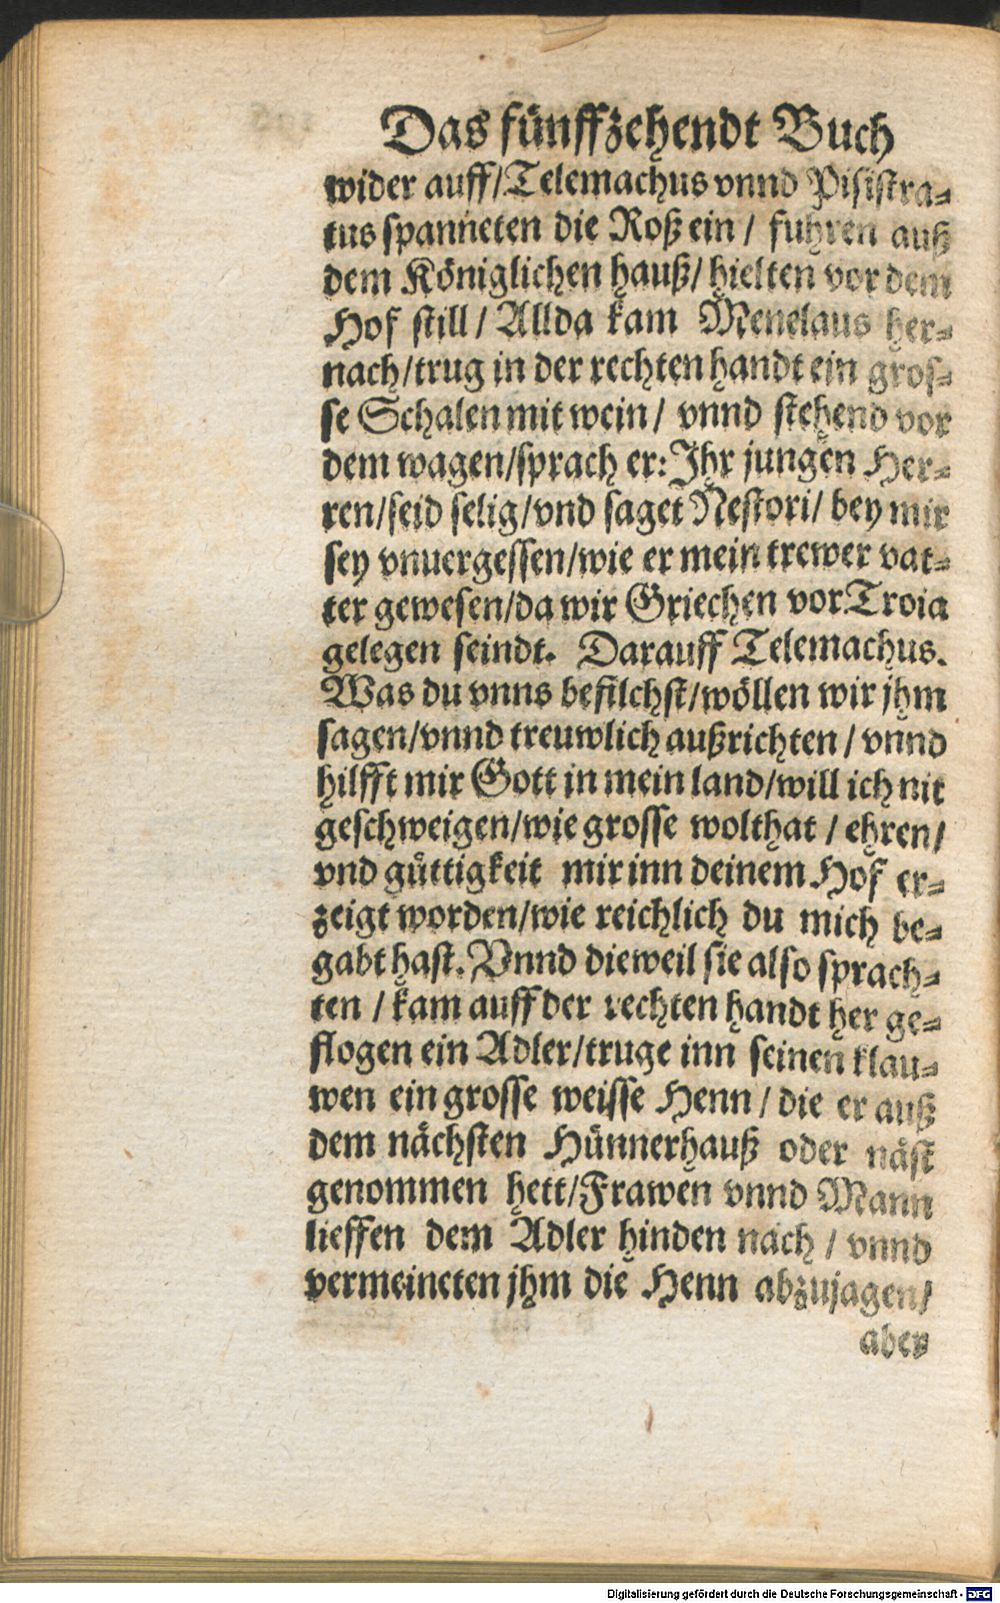 Das fünffzehendt Buch
wider auff/Telemachus vnnd Pisistra-
tus spanneten die Roß ein / fuhren auß
dem Königlichen hauß/ hielten vor dem
Hof still / Allda kam Menelaus her-
nach/trug in der rechten handt ein gros-
se Schalen mit wein / vnnd stehend vor
dem wagen/sprach er: Ihr jungen Her-
ren/seid selig/vnd saget Nestori/ bey mir
sey vnuergessen/wie er mein trewer vat-
ter gewesen/da wir Griechen vor Troia
gelegen seindt. Darauff Telemachus.
Was du vnns befilchst/wöllen wir jhm
sagen/vnnd treuwlich außrichten / vnnd
hilfft mir Gott in mein land/will ich nit
geschweigen/wie grosse wolthat / ehren/
vnd güttigkeit mir inn deinem Hof er-
zeigt worden/wie reichlich du mich be-
gabt hast. Vnnd dieweil sie also sprach-
ten / kam auff der rechten handt her ge-
flogen ein Adler/truge inn seinen klau-
wen ein grosse weisse Henn / die er auß
dem nächsten Hünnerhauß oder näst
genommen hett/Frawen vnnd Mann
lieffen dem Adler hinden nach / vnnd
vermeineten jhm die Henn abzujagen/
aber
Digitalisierung gefördert durch die Deutsche Forschungsgemeinschaft - DFG